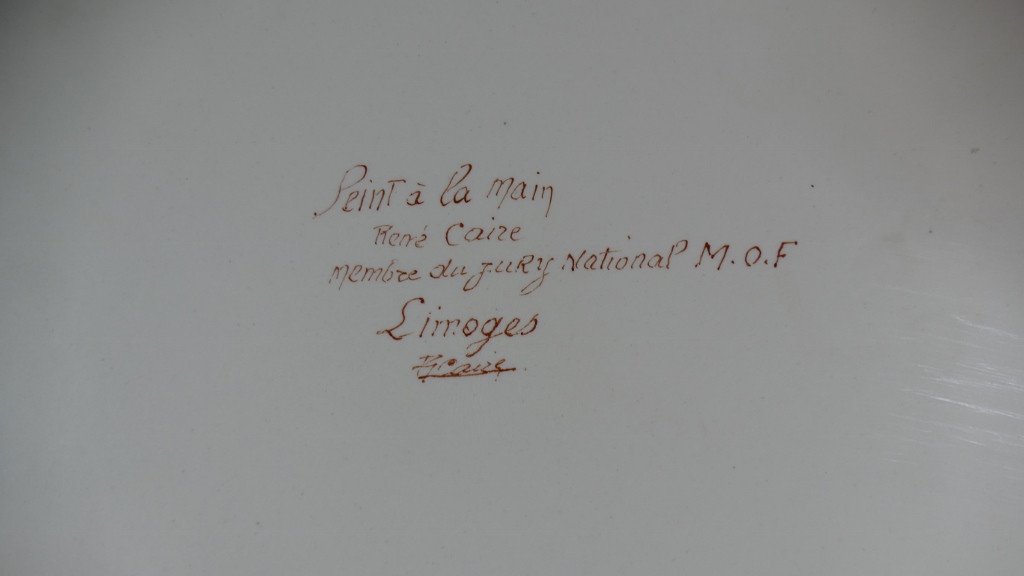 Peint à la main
René Caire
membre du jury National M.O.F
Limoges
R Caire